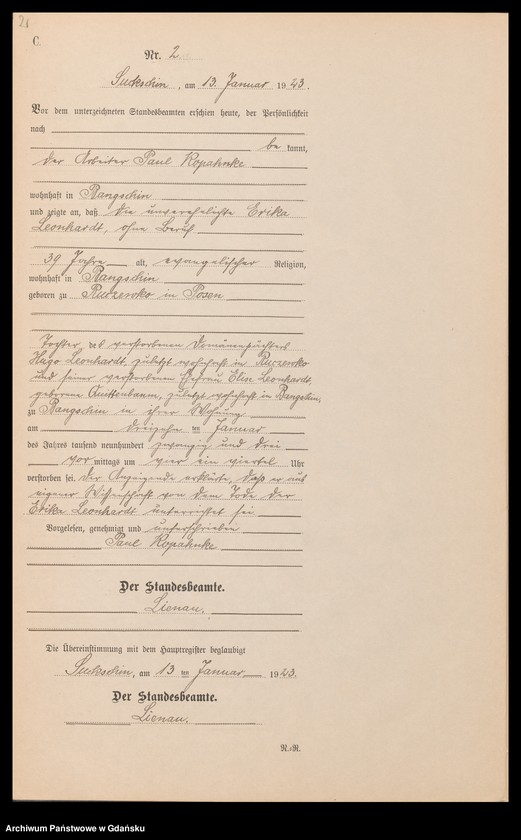 21
C.
Nr. 2
Suckschin, am 13. Januar 1923.
Vor dem unterzeichneten Standesbeamten erschien heute, der Persönlichkeit
nach
bekannt,
der Arbeiter Paul Kopahnke
wohnhaft in Rangschin
und zeigte an, daß die unverehelichte Erika
Leonhardt, ohne Beruf
39 Jahre alt, evangelischer Religion,
wohnhaft in Rangschin
geboren zu Ruczewko in Posen
Tochter des verstorbenen Domänenpächters
Hugo Leonhardt, zuletzt wohnhaft in Ruczewko
und seiner verstorbenen Ehefrau Elise Leonhardt,
geborene Quittenbaum, zuletzt wohnhaft in Rangschin,
zu Rangschin in ihrer Wohnung
am dreizehn ten Januar
des Jahres tausend neunhundert zwanzig und drei
vor mittags um vier ein viertel Uhr
verstorben sei. Der Anzeigende erklärte, daß er aus
eigener Wissenschaft von dem Tode der
Erika Leonhardt unterrichtet sei.
Vorgelesen, genehmigt und unterschrieben
Paul Kopahnke
Der Standesbeamte.
Lienau.
Die Übereinstimmung mit dem Hauptregister beglaubigt
Suckschin, am 13 ten Januar 1923.
Der Standesbeamte.
Lienau.
N.=R.
Archiwum Państwowe w Gdańsku